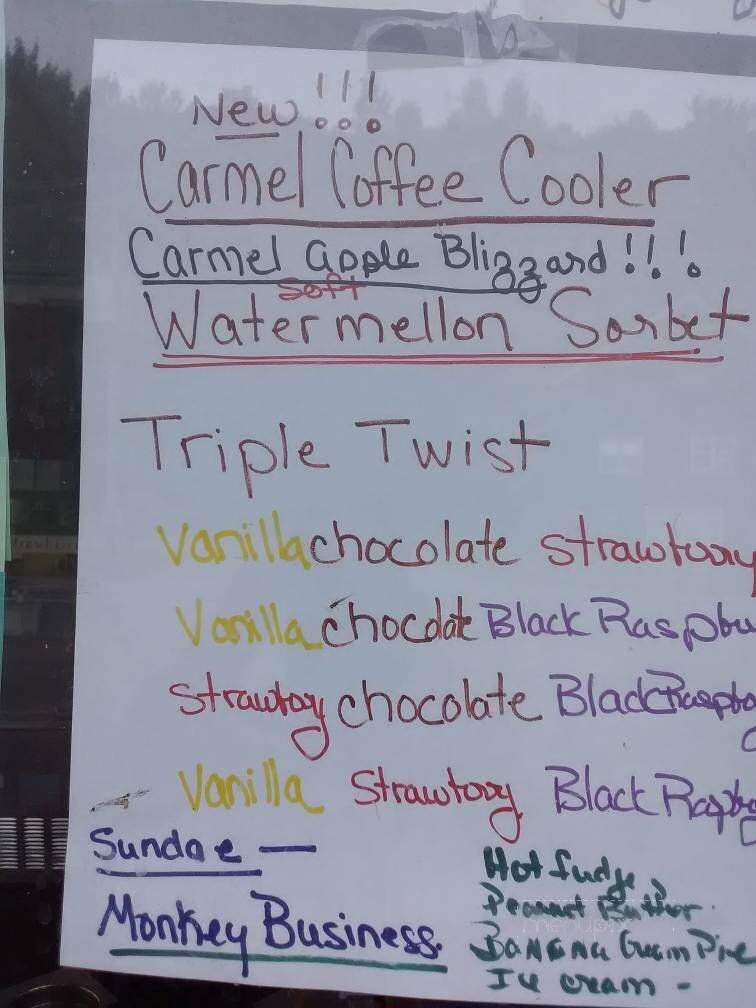 New!!!
Carmel Coffee Cooler
Carmel apple Blizzard!!!
Soft
Watermellon Sorbet
Triple Twist
Vanilla chocolate strawberry
Vanilla chocolate Black Raspby
Strawbery chocolate Black Raspby
Vanilla Strawbery Black Raspby
Sundae —
Hot fudge,
Monkey Business.
Peanut Butter
BANANA Cream Pie
Ice cream -